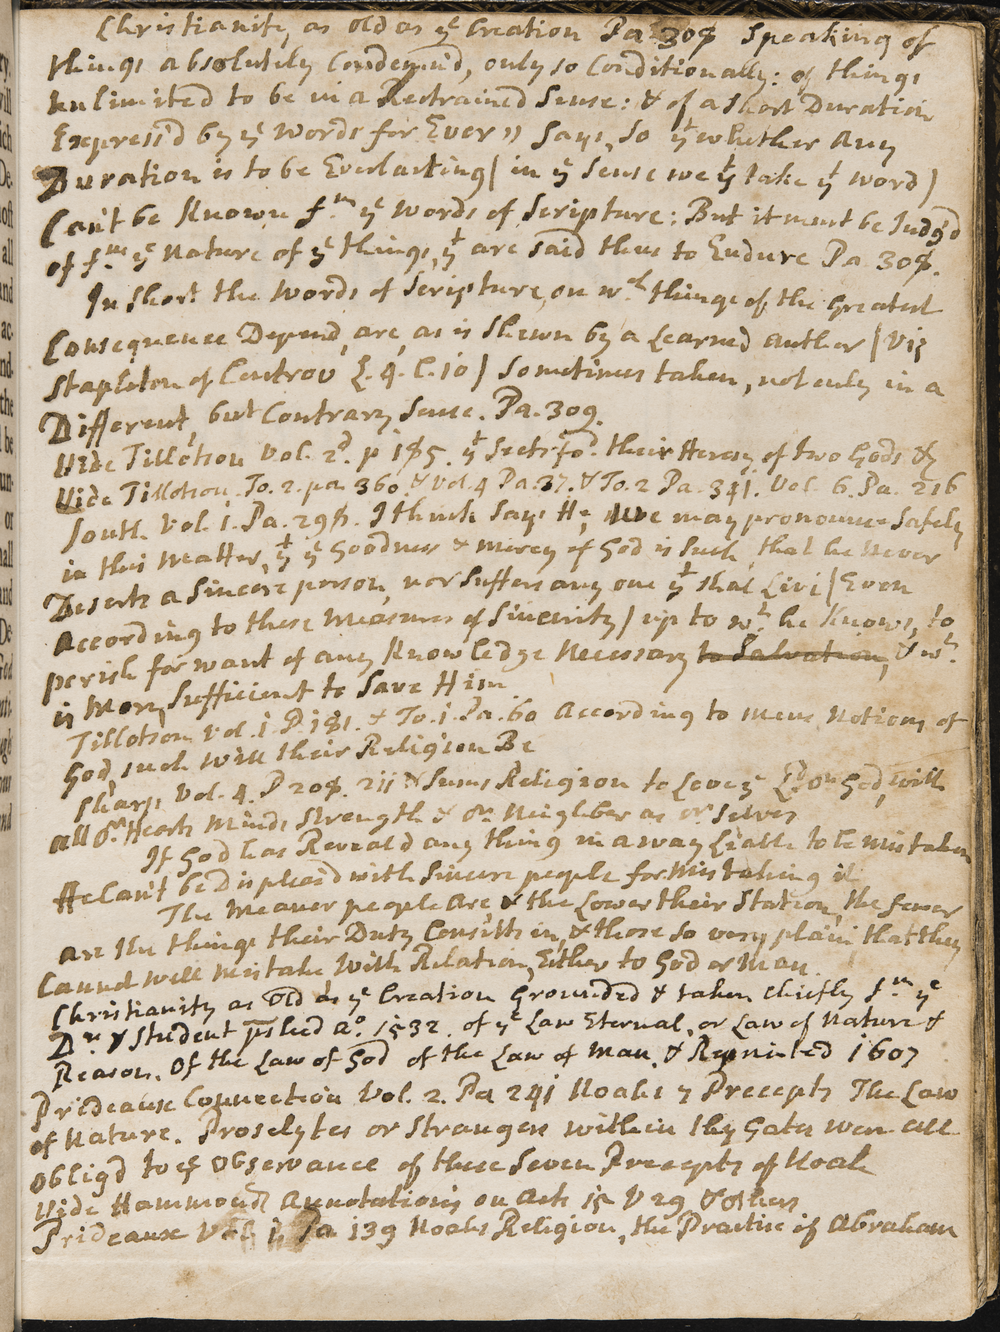 Christianity as old as yᵉ Creation Pa 308 Speaking of
things absolutely Condemnd, only so Conditionally: of things
unlimited to be in a Restrained Sense: & of a short Duration
Express'd by yᵉ words for Ever " says, so yᵗ whether any
Duration is to be Everlasting ( in yᵉ sense we yᵗ take yᵗ word )
Can't be Known fᵐ yᵉ words of Scripture: But it must be Judg'd
of fᵐ yᵉ Nature of yᵉ things, yᵗ are said thus to Endure Pa 308.
In Short the Words of Scripture, on wᶜʰ things of the greatest
Consequence Depend, are, as is Shewn by a Learned auther ( Viz
Stapleton of Controv L. 4. C. 10 ) Sometimes taken, not only in a
Different, but Contrary Sense. Pa. 309.
Vide Tillotson Vol. 2ᵈ. p 185. yᵗ Sects for their Heresy of two Gods &
Vide Tillotson. To. 2. pa. 360. & Vol. 4 Pa. 37. & To. 2 Pa. 341. Vol. 6. Pa. 216
South. Vol. 1. Pa. 298. I think says He, we may pronounce Safely
in this Matter, yᵗ yᵉ Goodness & mercy of God is Such, that he Never
Deserts a Sincere person, nor Suffers any one yᵗ shal Live ( Even
according to these Measures of Sincerity ) up to wᵗ he Knows, to
perish for want of any Knowledge Necessary to Salvation, & wᵗ.
is More, Sufficient to Save Him.
Tillotson Vol. 1. P. 181. & To. 1. Pa. 60 According to Mens Notions of
God, such will their Religion Be
Sharp Vol. 4. P 208. 211 Sums Religion to Love yᵉ Lᵈ oʳ God, with
all oʳ Hearts Minds Strength & oʳ Neighber as oʳ Selves
If God has Reveald any thing in a way Liable to be mistaken
He Can't be Displeas'd with Sincere people for Mistaking it
The Meaner people are & the Lower their Station, the fewer
are the things their Duty Consists in, & those so very plain that they
Cannot well mistake With Relation, Either to God or Man.
Christianity as Old as yᵉ Creation Grounded & taken chiefly fᵐ yᵉ
Dʳ. & Student Aᵒ. 1532. of yᵉ Law Eternal, or Law of Nature &
Reason. Of the Law of God of the Law of Man. & Reprinted 1607
Prideaux Connection Vol. 2. Pa 241 Noahs 7 Precepts The Law
of Nature. Proselytes or Strangers within thy Gates were all
obligd to yᵉ Observance of these Seven Precepts of Noah
Vide Hammonds Annotations on Acts 15 V 29 & others
Prideaux Vol. 1. Pa 139 Noahs Religion, the Practice of Abraham